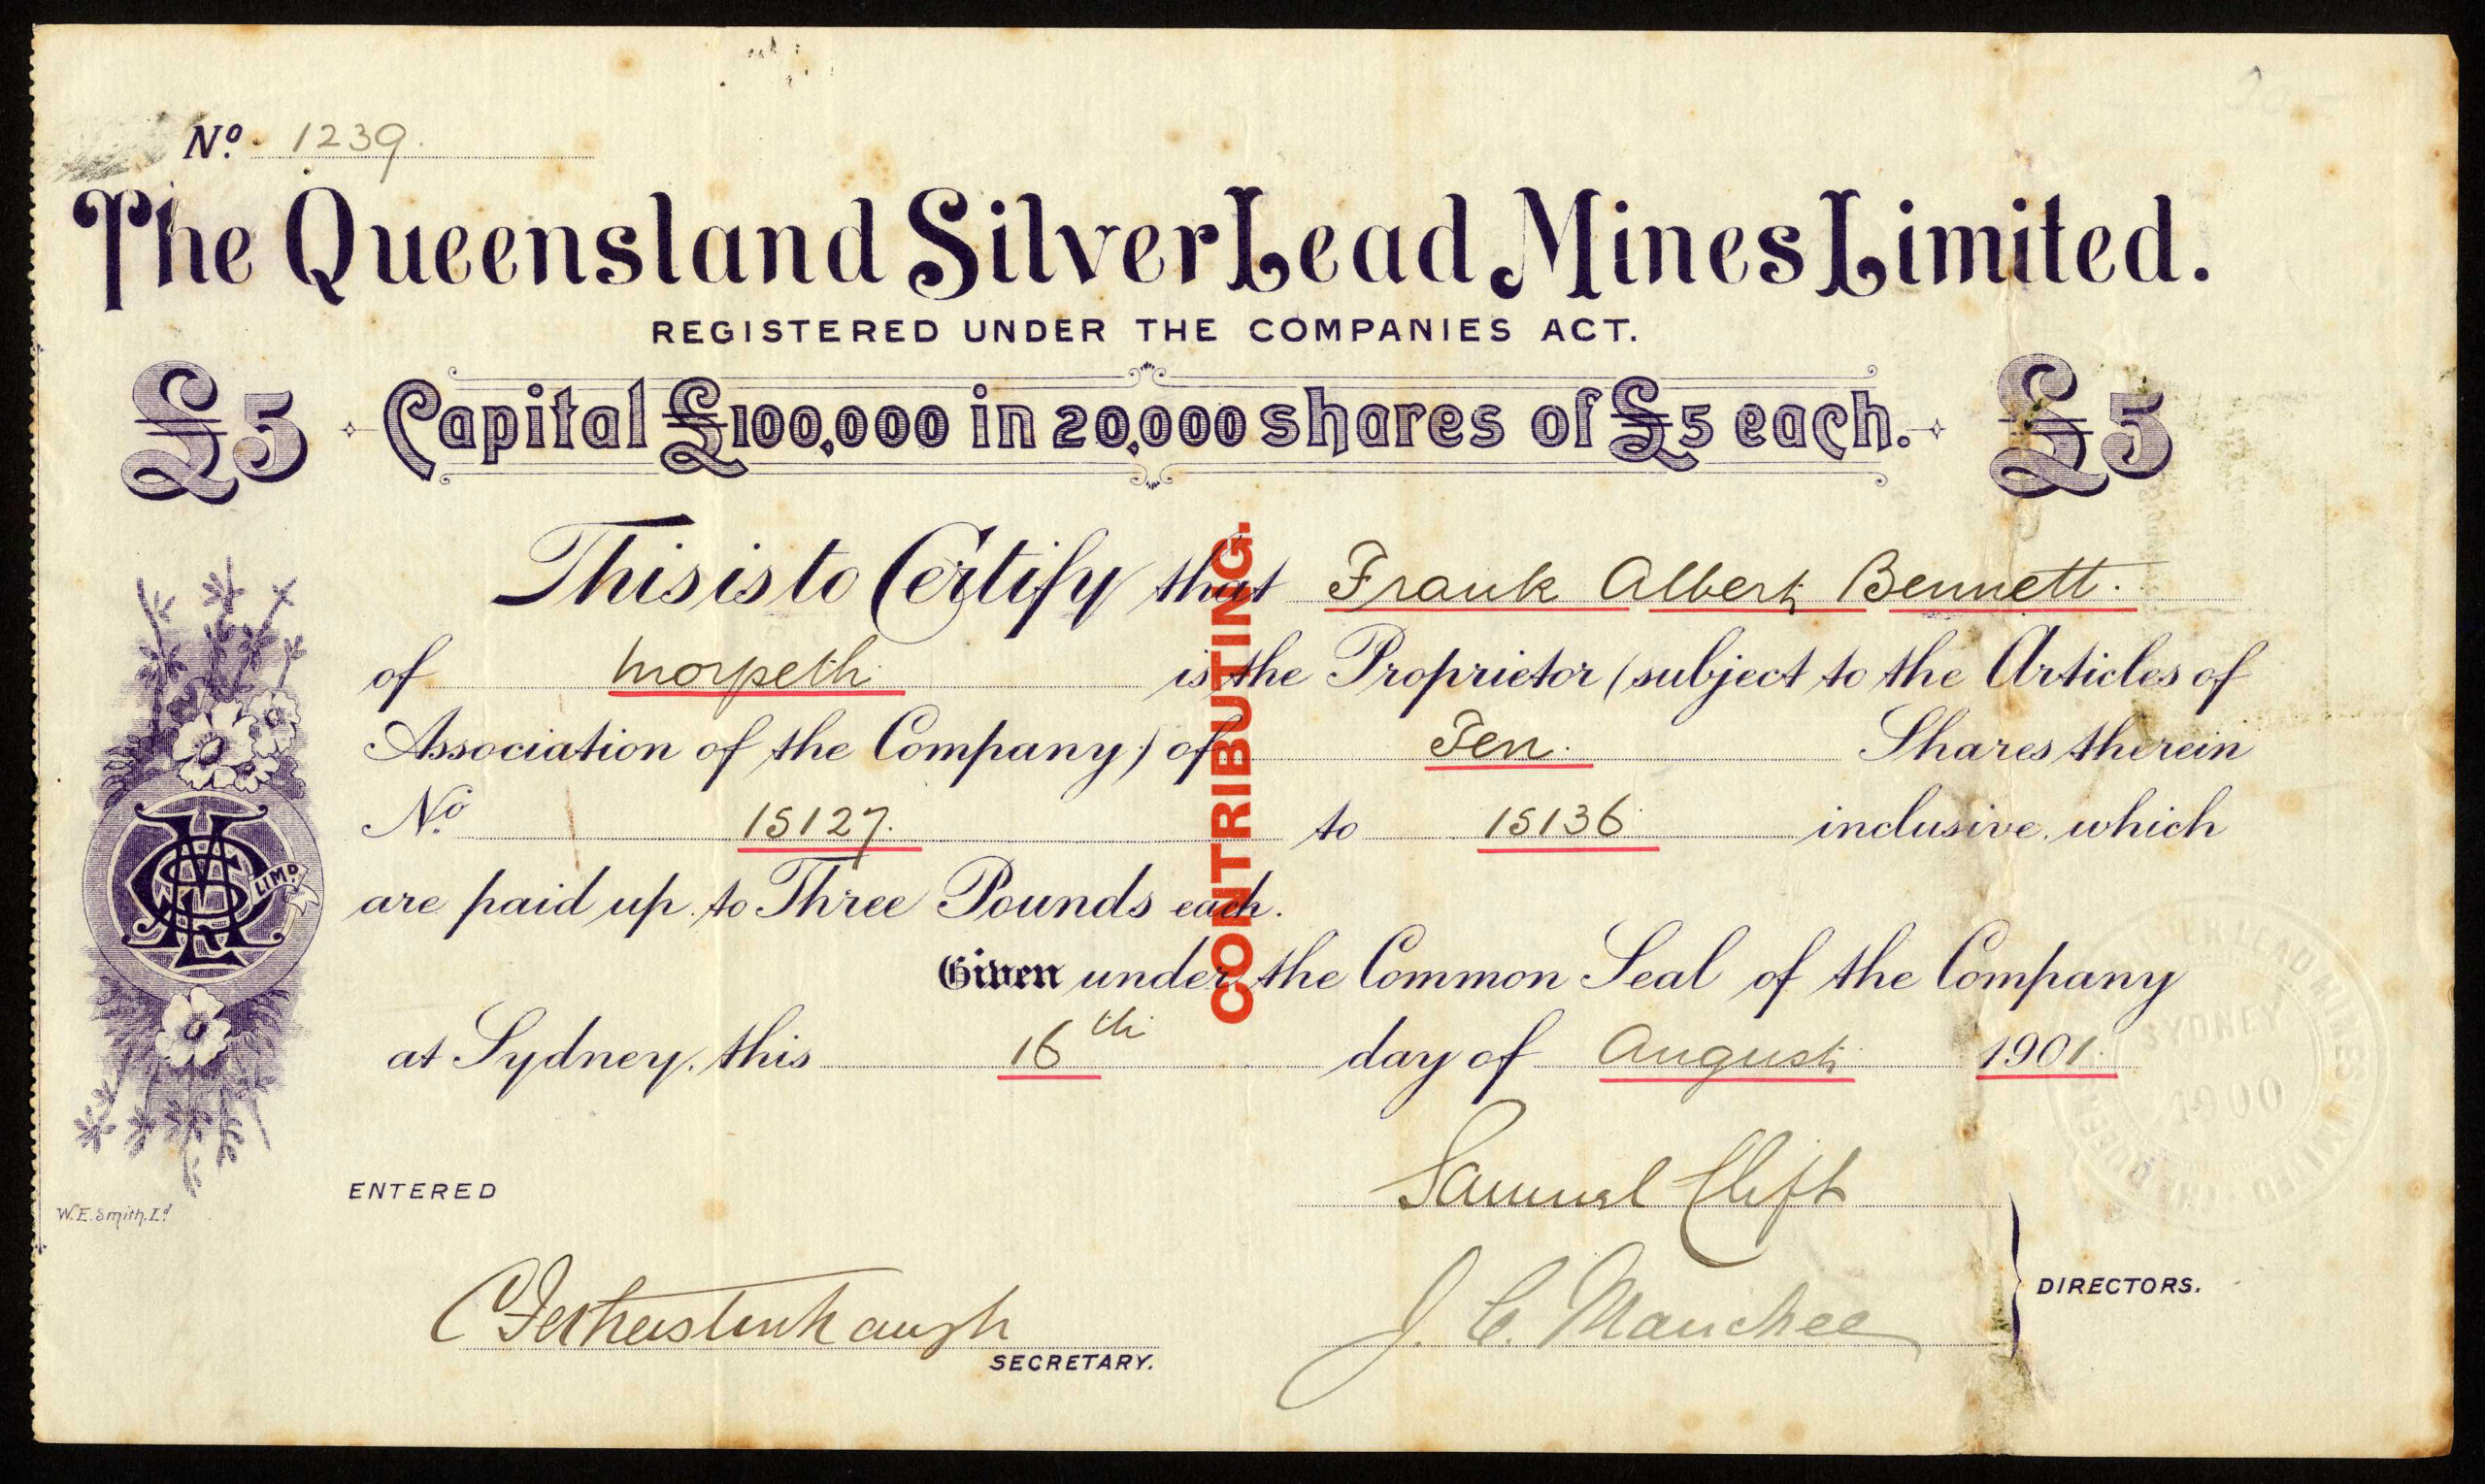 No. 1239.
The Queensland Silver Lead Mines Limited.
REGISTERED UNDER THE COMPANIES ACT.
£5 Capital £100,000 in 20,000 shares of £5 each. £5
This is to Certify that Frank Albert Bennett.
of Morpeth is the Proprietor (subject to the Articles of
Association of the Company) of Ten Shares therein
No. 15127. to 15136 inclusive, which
are paid up to Three Pounds each.
Given under the Common Seal of the Company
at Sydney, this 16th day of August 1901.
CONTRIBUTING.
LIMD.
THE QUEENSLAND SILVER LEAD MINES LIMITED
SYDNEY
1900
ENTERED
Samuel Clift
W.E. Smith. Ld.
C Fetherstonhaugh
SECRETARY.
J. C. Manchee
DIRECTORS.